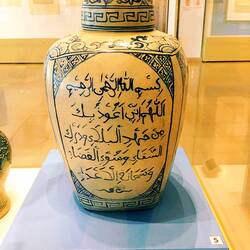 بسم الله الرحمن الرحيم
اللهم اني اعوذ بك
من جهد البلاء ودرك
الشقاء وسوء القضاء
وشماتة الاعداء
5